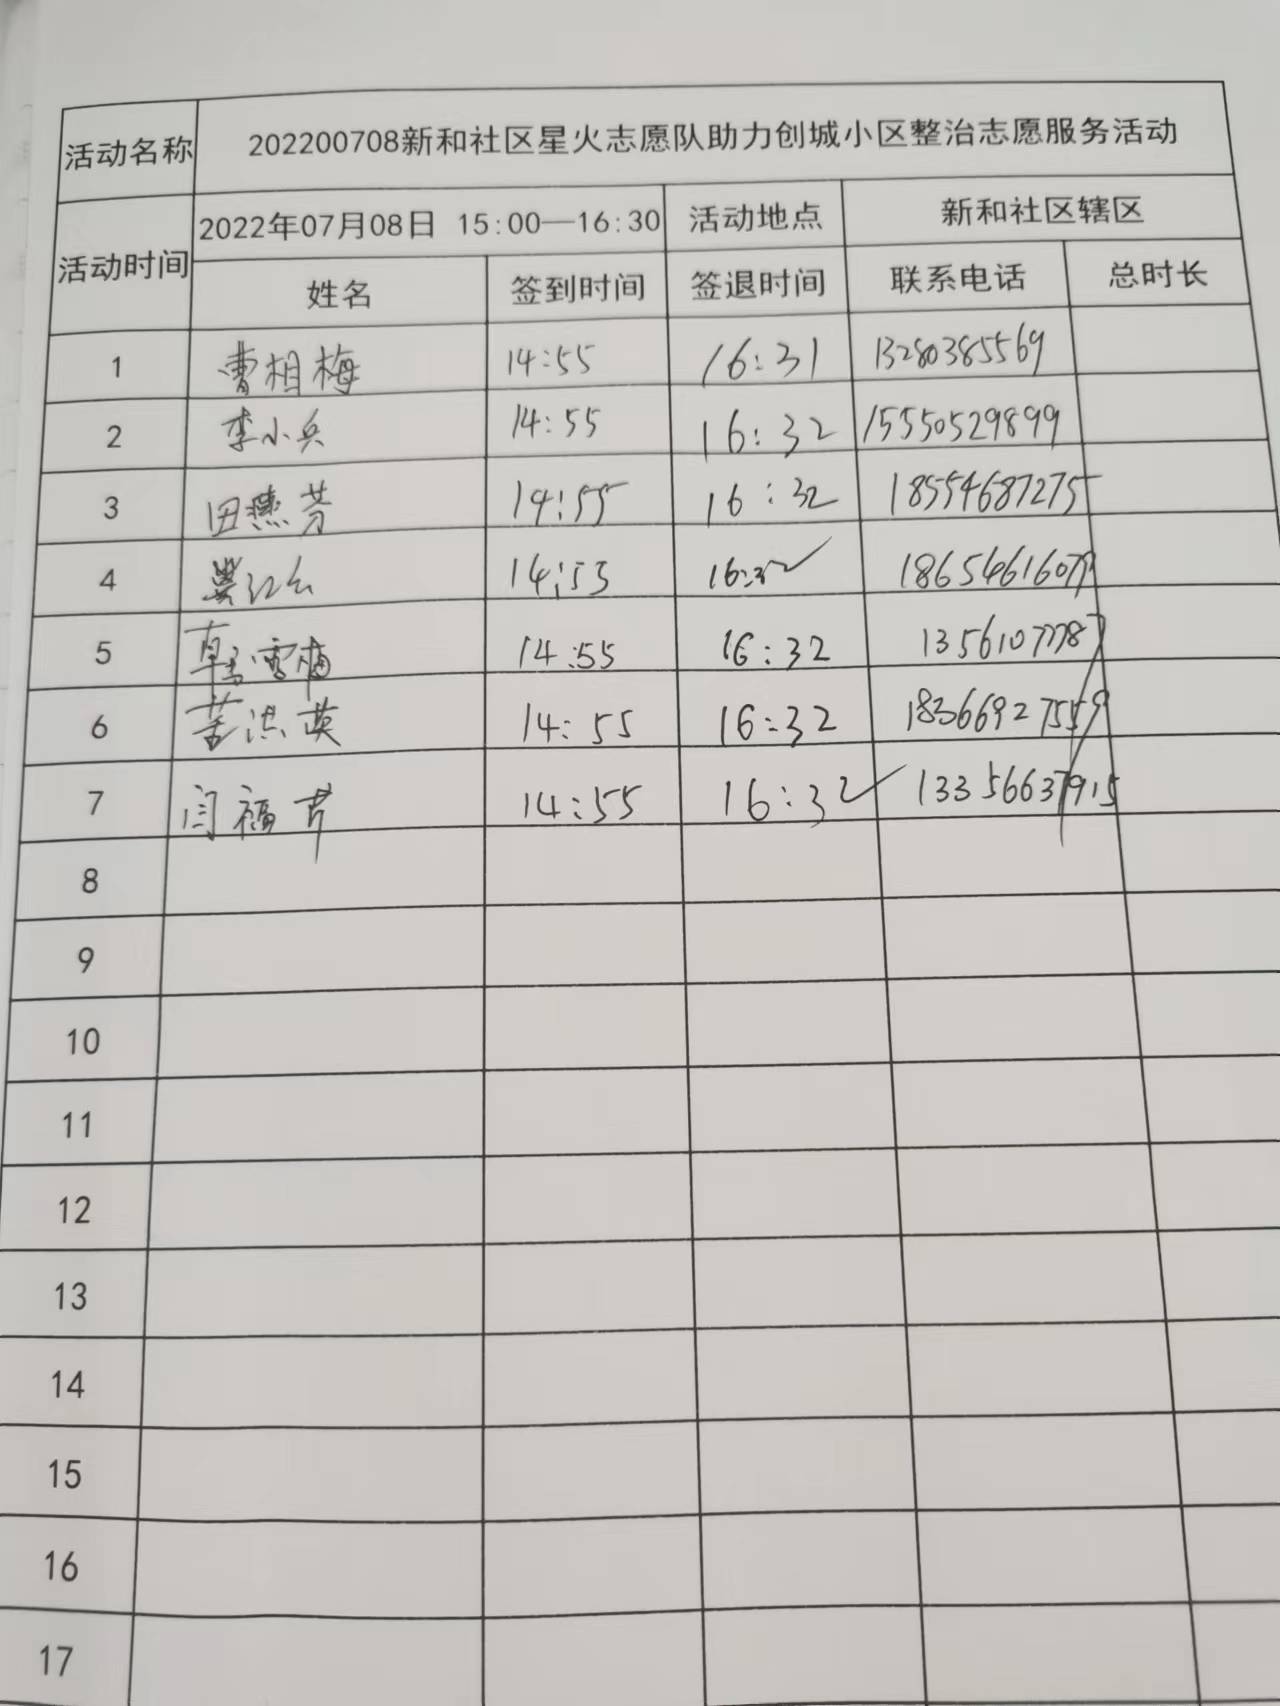 活动名称 202200708新和社区星火志愿队助力创城小区整治志愿服务活动
活动时间 2022年07月08日 15:00—16:30 活动地点 新和社区辖区
姓名 签到时间 签退时间 联系电话 总时长
1 曹相梅 14:55 16:31 13280385569
2 李小兵 14:55 16:32 15550529899
3 田燕芳 14:55 16:32 18554687275
4 14:53 16:32 18654616079
5 韩雪梅 14:55 16:32 13561077787
6 苦洪英 14:55 16:32 18366927559
7 闫福芹 14:55 16:32 13356637915
8
9
10
11
12
13
14
15
16
17